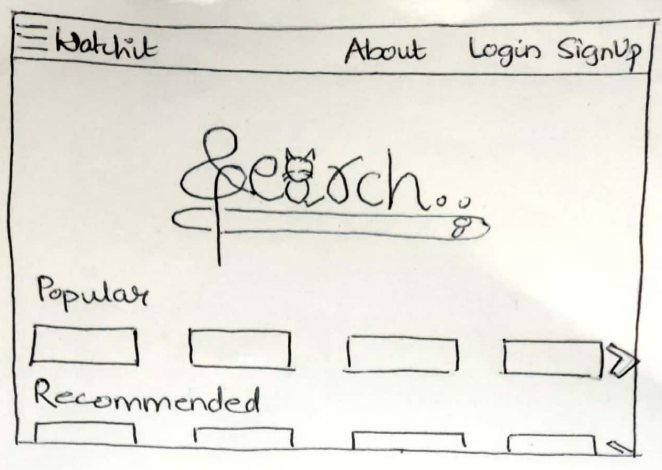 Watchit About Login SignUp
Search..
Popular
Recommended